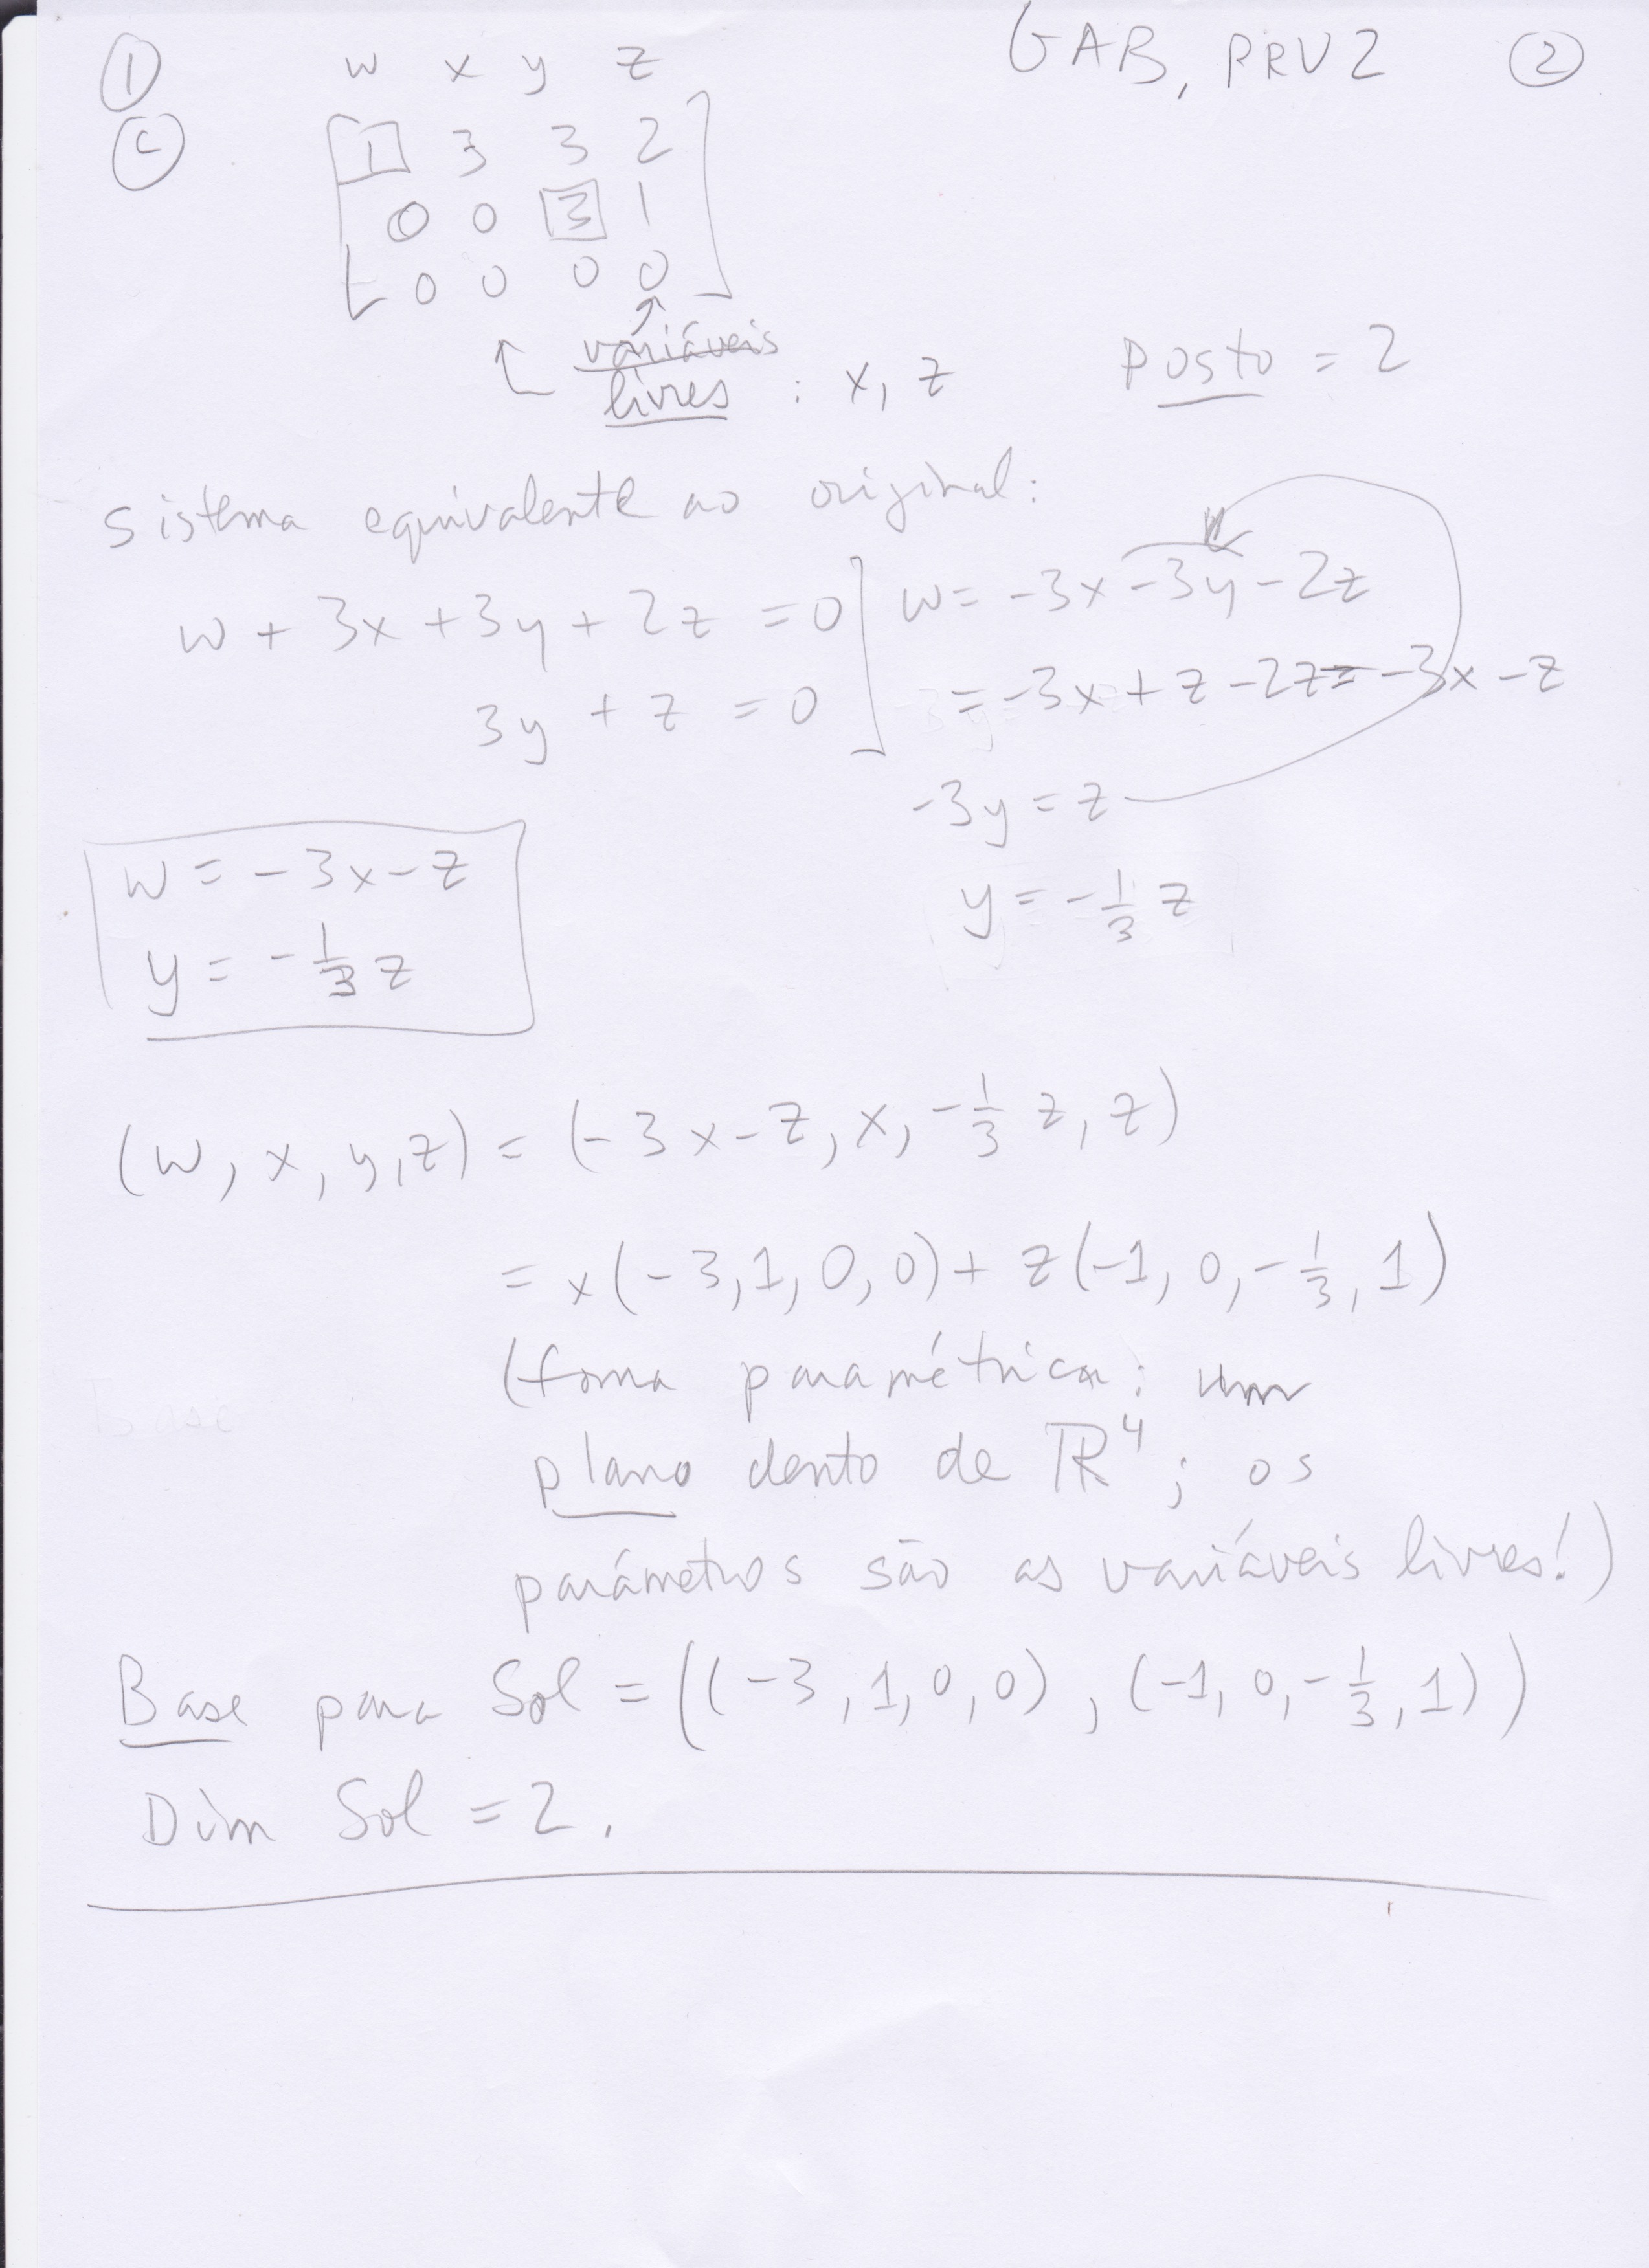 ① w x y z GAB, PRV2 ②
ⓒ
1 3 3 2
0 0 3 1
0 0 0 0
variáveis
livres : x, z posto = 2
sistema equivalente ao original:
w + 3x + 3y + 2z = 0 w = -3x - 3y - 2z
3y + z = 0 = -3x + z - 2z = -3x - z
-3y = z
w = -3x - z
y = -1/3 z
y = -1/3 z
(w, x, y, z) = (-3x - z, x, -1/3 z, z)
= x(-3, 1, 0, 0) + z(-1, 0, -1/3, 1)
(forma paramétrica: um
plano dento de ℝ⁴; os
parámetros são as variáveis livres!)
Base para Sol = ((-3, 1, 0, 0), (-1, 0, -1/3, 1))
Dim Sol = 2.